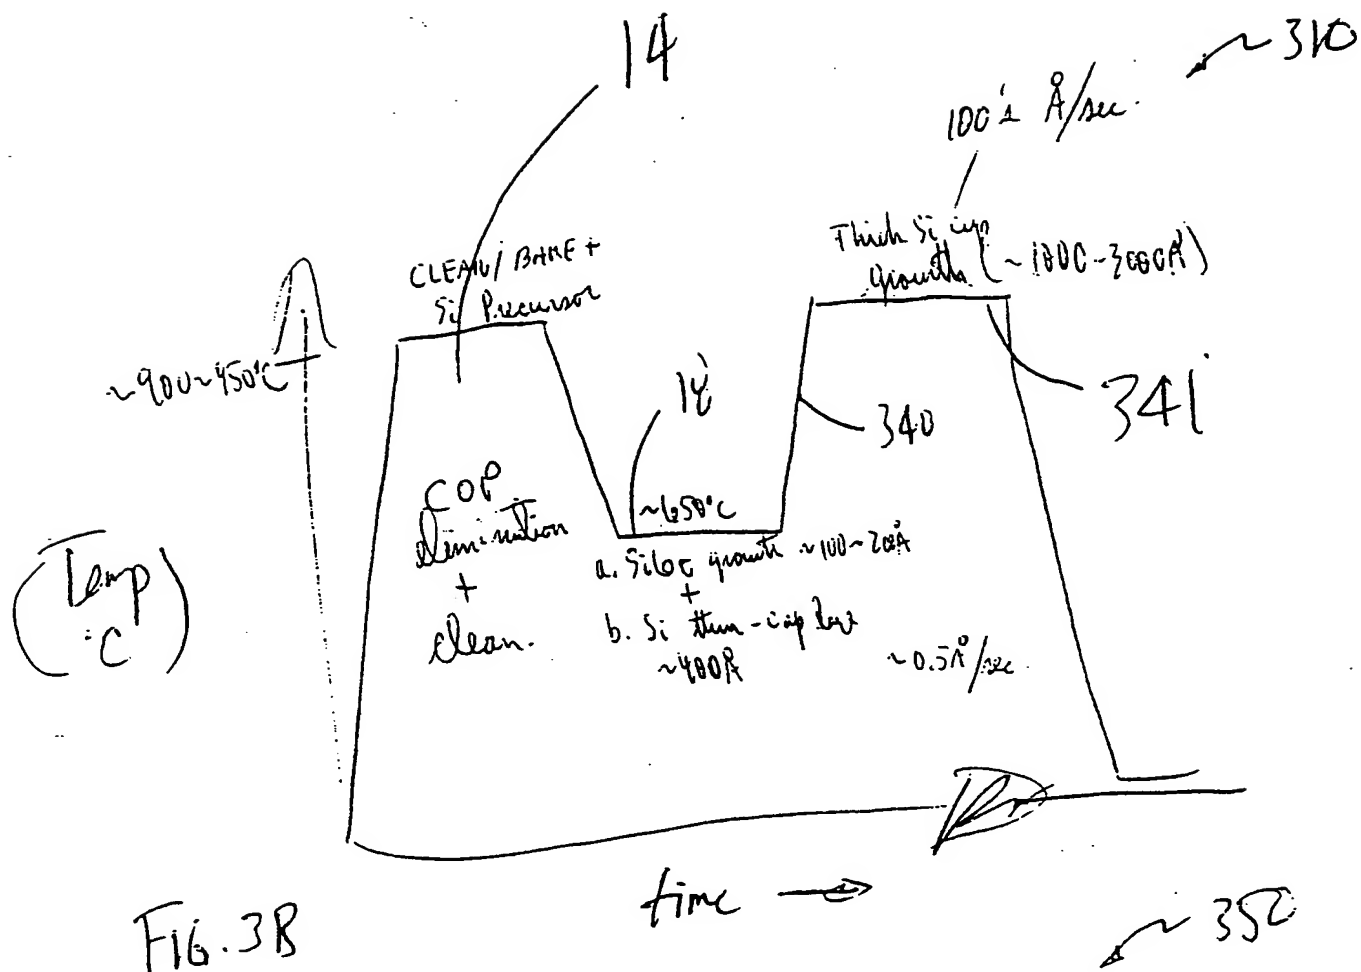 14
~ 310
100's Å/sec.
CLEAN/ BAKE +
Si Precursor
Thick Si cap
growth (~1000-3000Å)
~900~950°C
18
340
341
COP
elimination
+
clean.
~650°C
a. growth ~100~200Å
+
b. Si thin-cap
~400Å
~0.5Å/sec
(Temp
°C)
time
FIG. 3B
~ 350